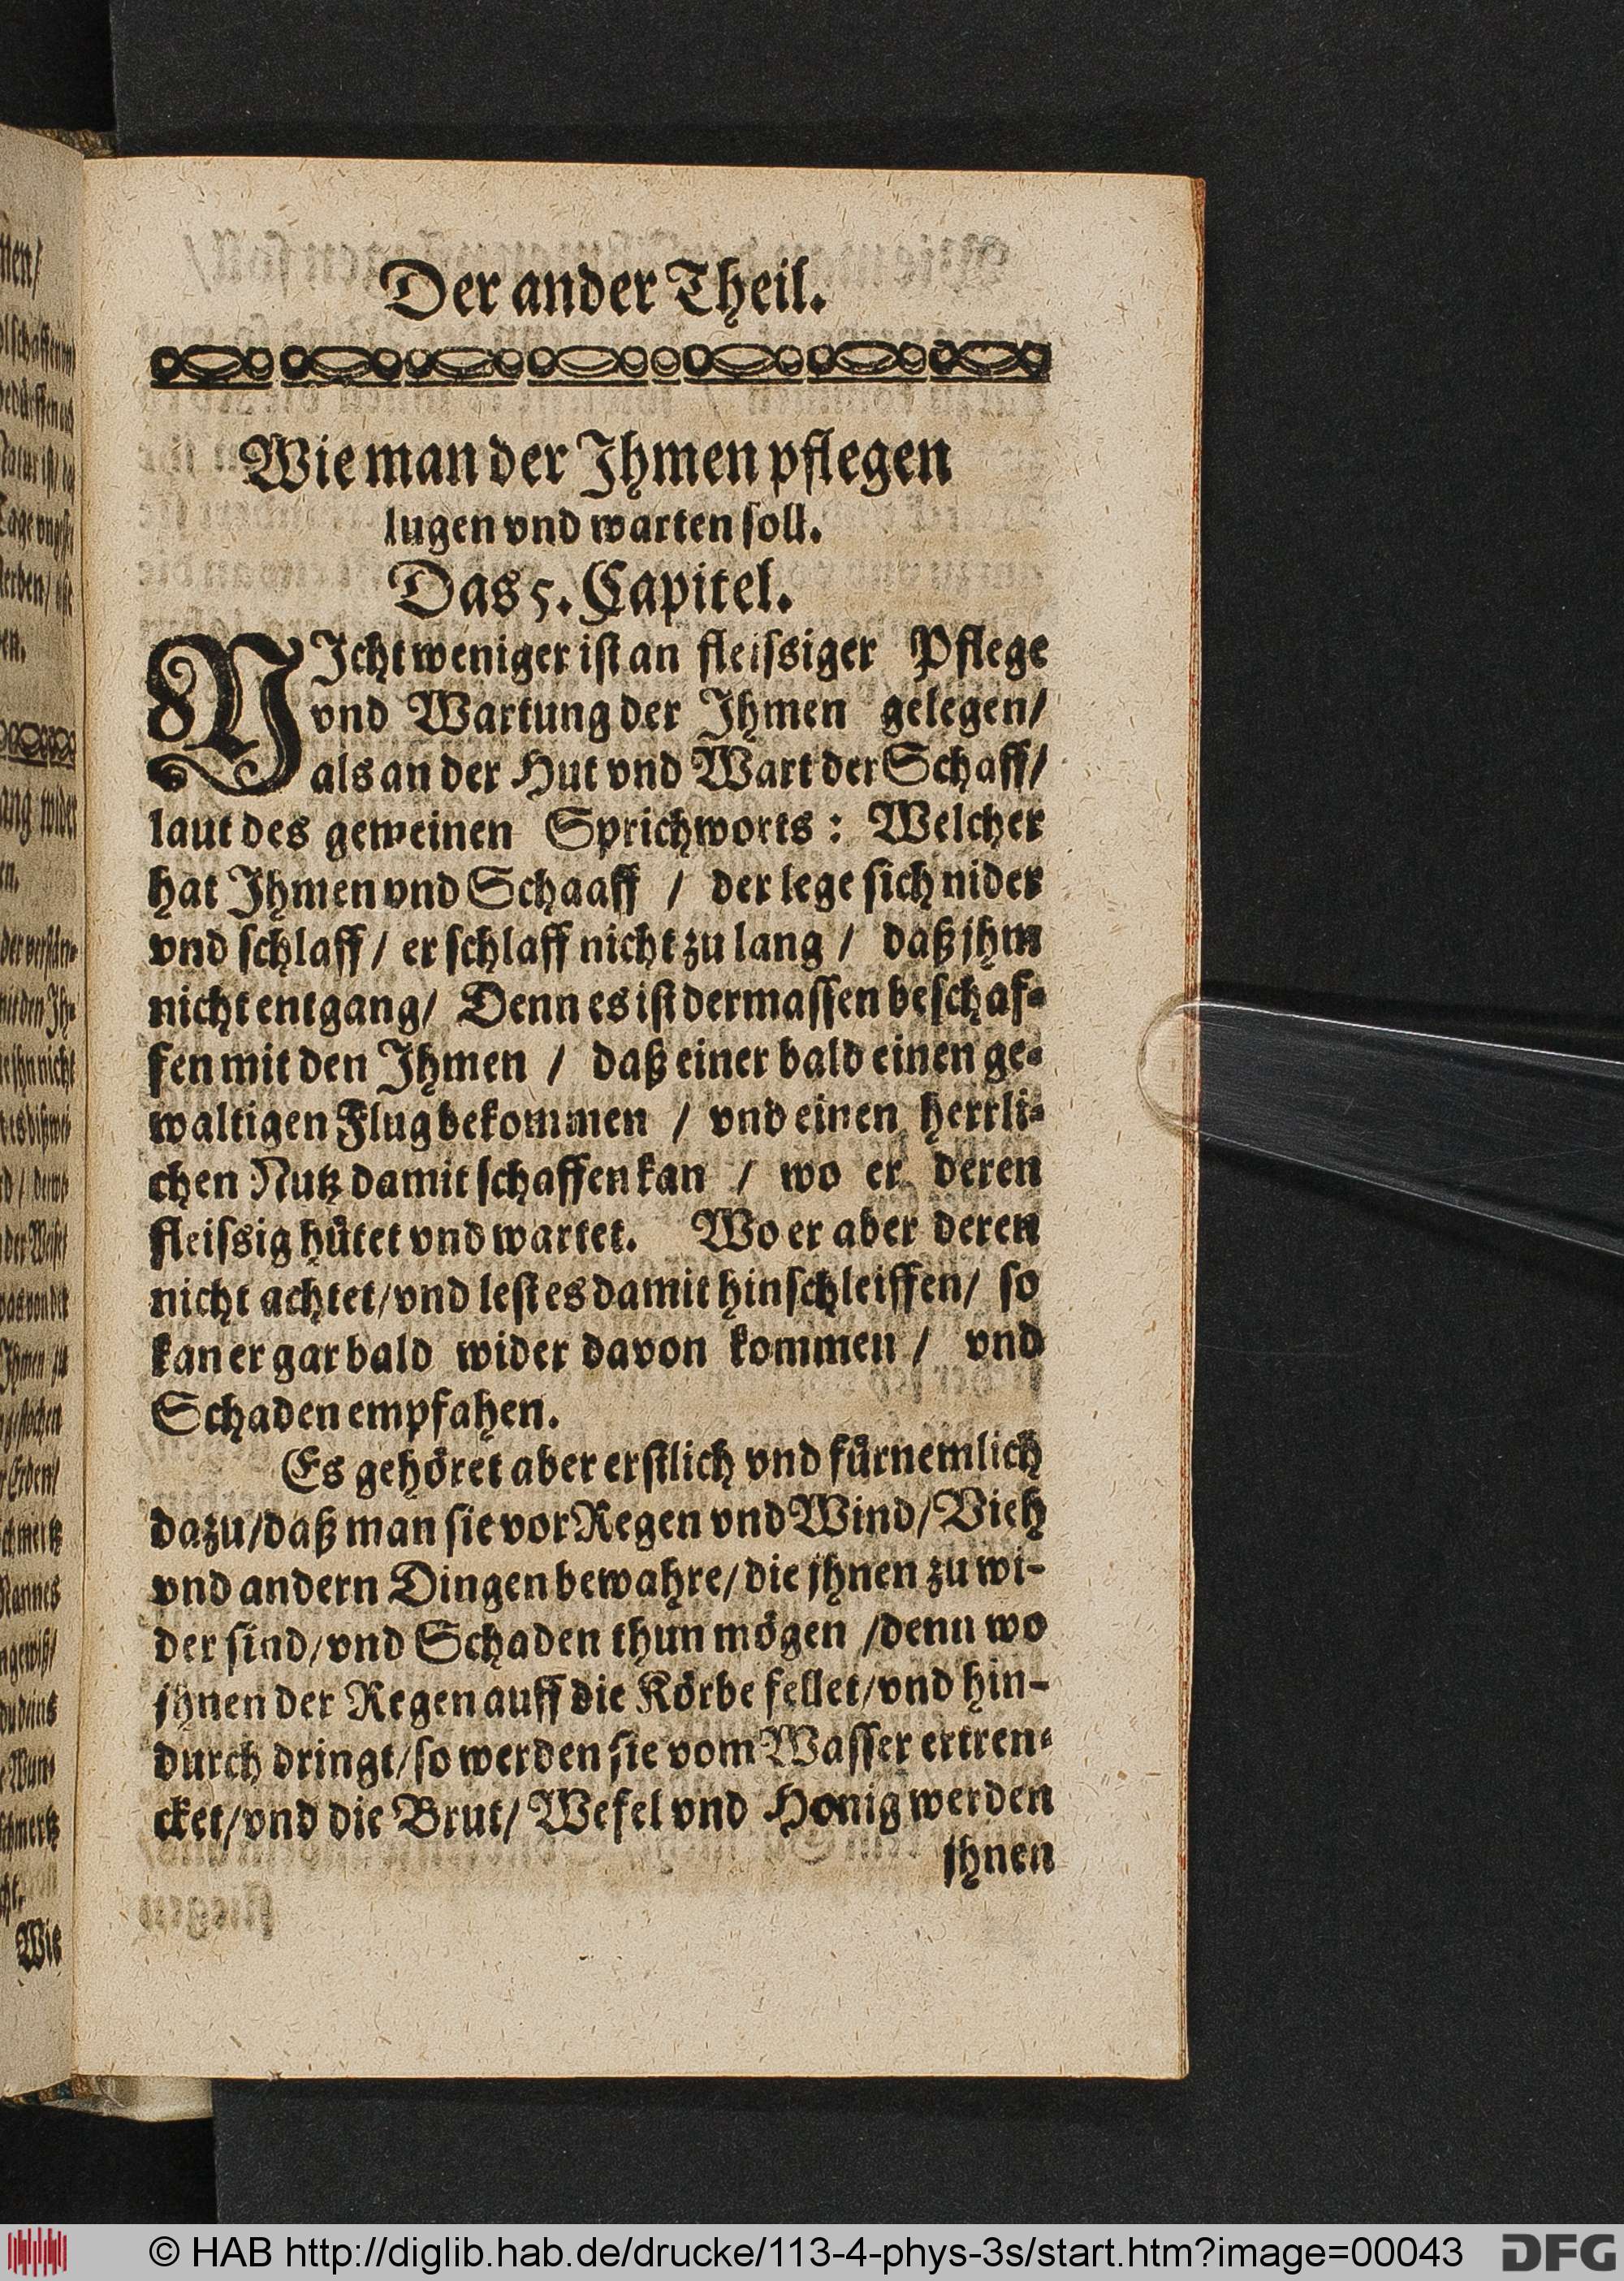 Der ander Theil.
Wie man der Ihmen pflegen
lugen vnd warten soll.
Das 5. Capitel.
NIcht weniger ist an fleissiger Pflege
vnd Wartung der Ihmen gelegen/
als an der Hut vnd Wart der Schaff/
laut des gemeinen Sprichworts: Welcher
hat Ihmen vnd Schaaff / der lege sich nider
vnd schlaff/ er schlaff nicht zu lang / daß jhm
nicht entgang/ Denn es ist dermassen beschaf-
fen mit den Ihmen / daß einer bald einen ge-
waltigen Flug bekommen / vnd einen herrli-
chen Nutz damit schaffen kan / wo er deren
fleissig hütet vnd wartet. Wo er aber deren
nicht achtet/vnd lest es damit hinschleiffen/ so
kan er gar bald wider davon kommen / vnd
Schaden empfahen.
Es gehöret aber erstlich vnd fürnemlich
dazu/daß man sie vor Regen vnd Wind/Vieh
vnd andern Dingen bewahre/die jhnen zu wi-
der sind/vnd Schaden thun mögen /denn wo
jhnen der Regen auff die Körbe fellet/vnd hin-
durch dringt/so werden sie vom Wasser ertren-
cket/vnd die Brut/ Wefel vnd Honig werden
jhnen
Wie
© HAB http://diglib.hab.de/drucke/113-4-phys-3s/start.htm?image=00043
DFG